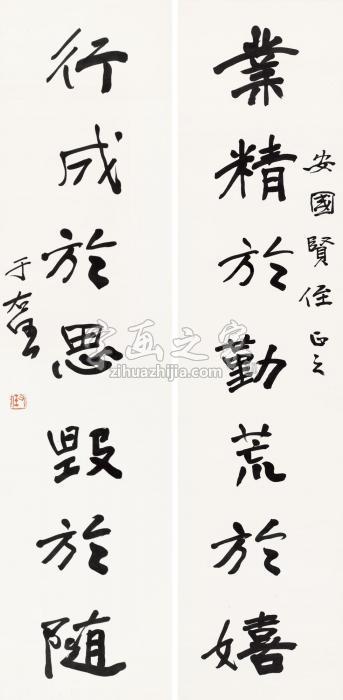 業精於勤荒於嬉
安國賢侄正之
行成於思毀於随
于右任
字画之家
zihuazhijia.com